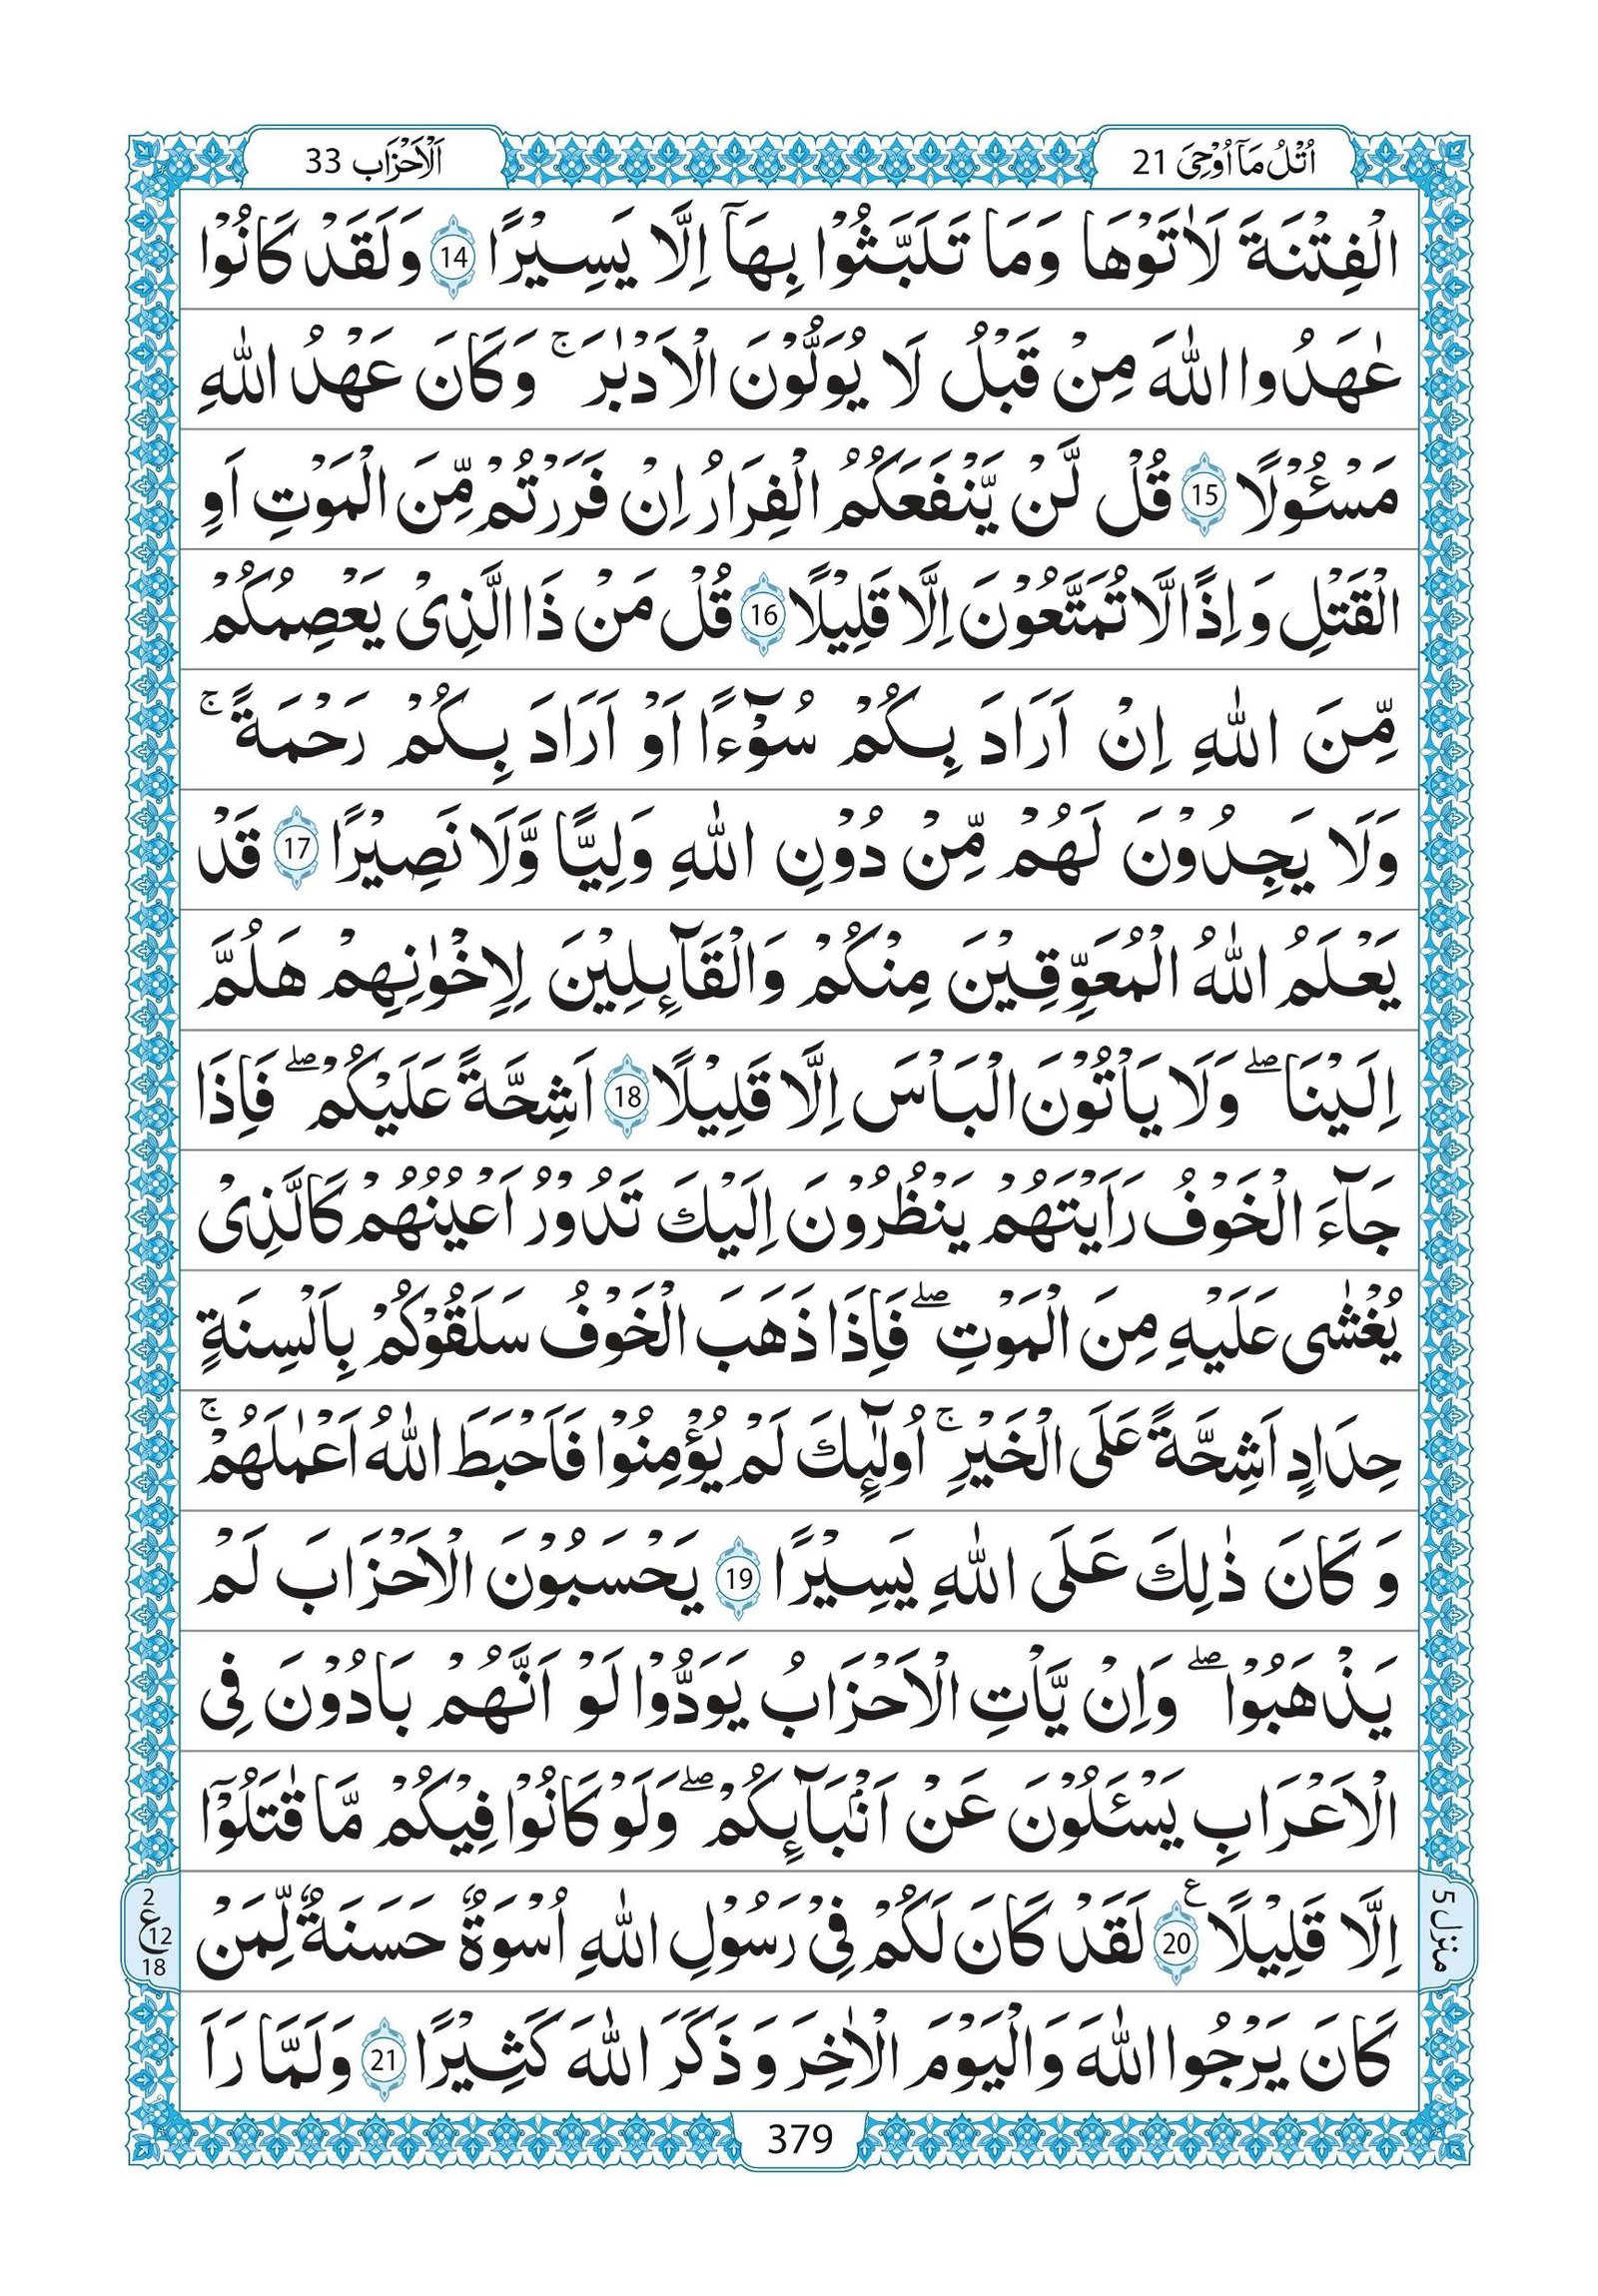 اُتْلُ مَآ اُوْحِیَ 21
اَلْاَحْزَاب 33
الْفِتْنَةَ لَاٰتَوْهَا وَمَا تَلَبَّثُوْا بِهَآ اِلَّا یَسِیْرًا 14 وَلَقَدْ كَانُوْا
عٰهَدُوا اللّٰهَ مِنْ قَبْلُ لَا یُوَلُّوْنَ الْاَدْبٰرَ ۚ وَكَانَ عَهْدُ اللّٰهِ
مَسْـُٔوْلًا 15 قُلْ لَّنْ یَّنْفَعَكُمُ الْفِرَارُ اِنْ فَرَرْتُمْ مِّنَ الْمَوْتِ اَوِ
الْقَتْلِ وَاِذًا لَّا تُمَتَّعُوْنَ اِلَّا قَلِیْلًا 16 قُلْ مَنْ ذَا الَّذِیْ یَعْصِمُكُمْ
مِّنَ اللّٰهِ اِنْ اَرَادَ بِكُمْ سُوْٓءًا اَوْ اَرَادَ بِكُمْ رَحْمَةً ۚ
وَلَا یَجِدُوْنَ لَهُمْ مِّنْ دُوْنِ اللّٰهِ وَلِیًّا وَّلَا نَصِیْرًا 17 قَدْ
یَعْلَمُ اللّٰهُ الْمُعَوِّقِیْنَ مِنْكُمْ وَالْقَآىِٕلِیْنَ لِاِخْوٰنِهِمْ هَلُمَّ
اِلَیْنَا ۖ وَلَا یَاْتُوْنَ الْبَاْسَ اِلَّا قَلِیْلًا 18 اَشِحَّةً عَلَیْكُمْ ۖ فَاِذَا
جَآءَ الْخَوْفُ رَاَیْتَهُمْ یَنْظُرُوْنَ اِلَیْكَ تَدُوْرُ اَعْیُنُهُمْ كَالَّذِیْ
یُغْشٰی عَلَیْهِ مِنَ الْمَوْتِ ۖ فَاِذَا ذَهَبَ الْخَوْفُ سَلَقُوْكُمْ بِاَلْسِنَةٍ
حِدَادٍ اَشِحَّةً عَلَی الْخَیْرِ ۚ اُولٰٓىِٕكَ لَمْ یُؤْمِنُوْا فَاَحْبَطَ اللّٰهُ اَعْمٰلَهُمْ ۚ
وَكَانَ ذٰلِكَ عَلَی اللّٰهِ یَسِیْرًا 19 یَحْسَبُوْنَ الْاَحْزَابَ لَمْ
یَذْهَبُوْا ۖ وَاِنْ یَّاْتِ الْاَحْزَابُ یَوَدُّوْا لَوْ اَنَّهُمْ بَادُوْنَ فِی
الْاَعْرَابِ یَسْـَٔلُوْنَ عَنْ اَنْۢبَآىِٕكُمْ ۖ وَلَوْ كَانُوْا فِیْكُمْ مَّا قٰتَلُوْٓا
اِلَّا قَلِیْلًا 20 ع لَقَدْ كَانَ لَكُمْ فِیْ رَسُوْلِ اللّٰهِ اُسْوَةٌ حَسَنَةٌ لِّمَنْ
كَانَ یَرْجُوا اللّٰهَ وَالْیَوْمَ الْاٰخِرَ وَذَكَرَ اللّٰهَ كَثِیْرًا 21 وَلَمَّا رَاَ
منزل 5
2
ع 12
18
379